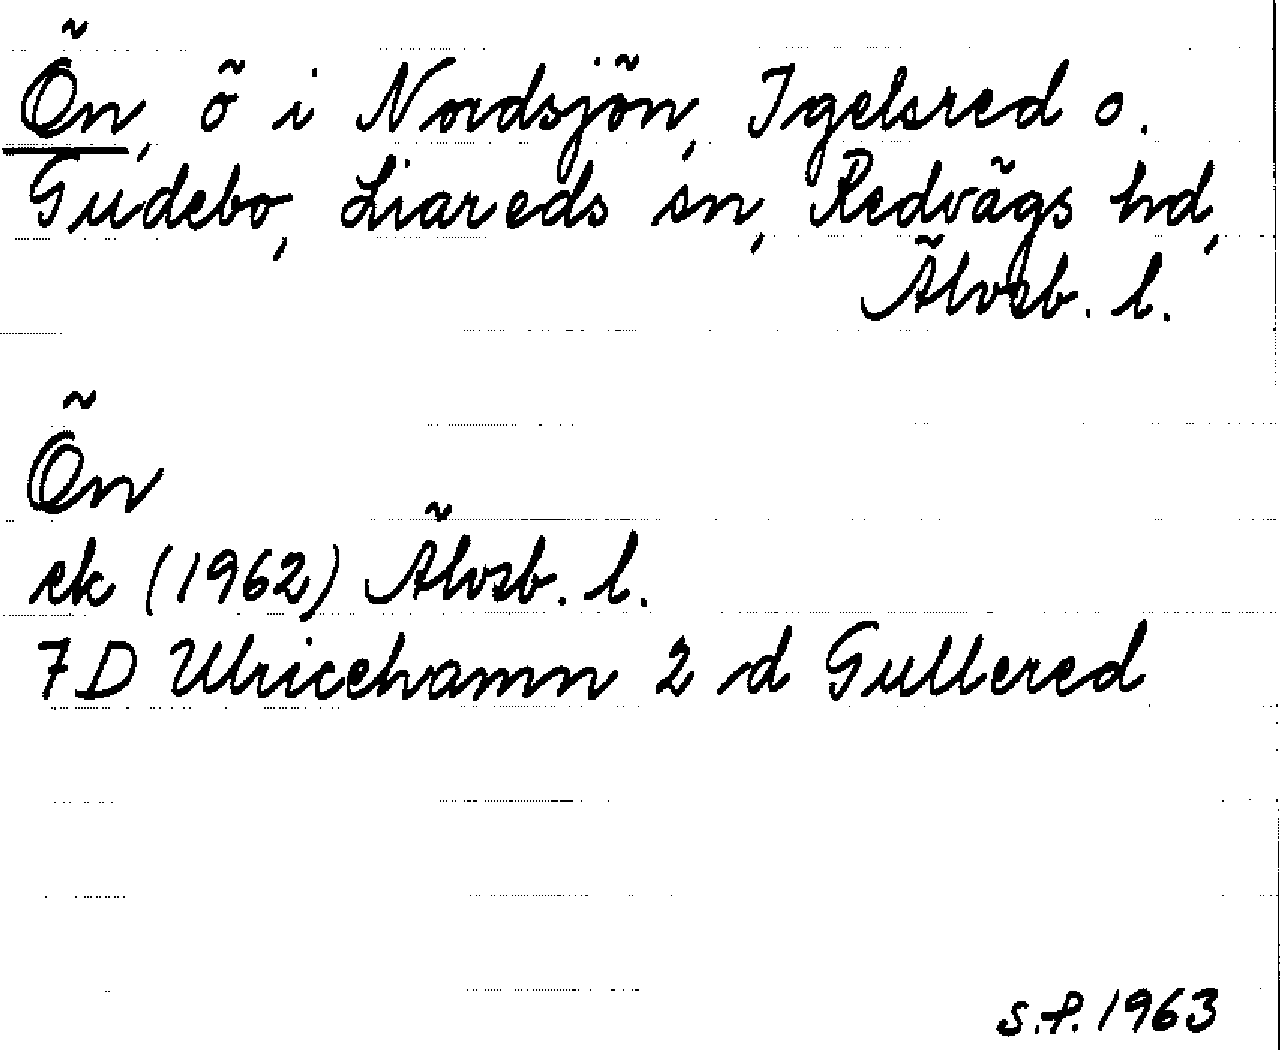 Ön, ö i Nordsjön, Igelsred o.
Gudebo, Liareds sn, Redvägs hd,
Älvsb. l.
Ön
ek (1962) Älvsb. l.
7D Ulricehamn 2 d Gullered
S.P. 1963